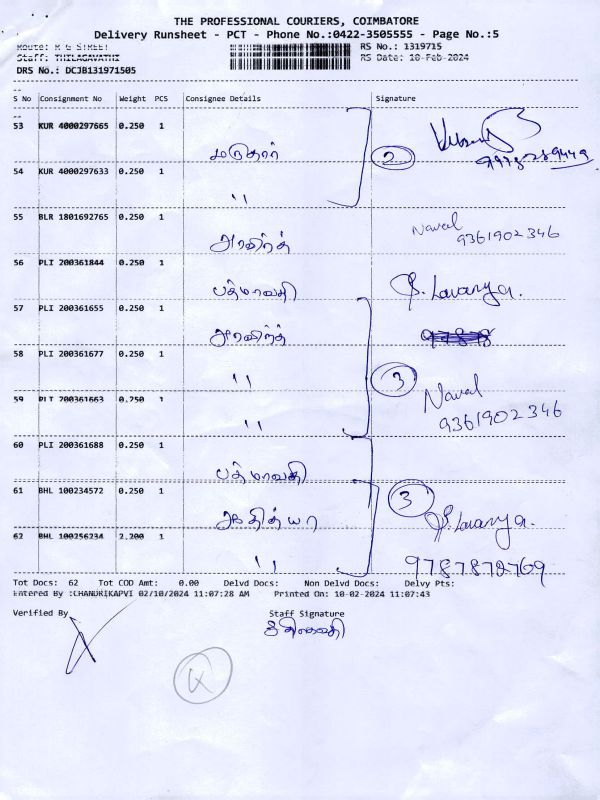 THE PROFESSIONAL COURIERS, COIMBATORE
Delivery Runsheet - PCT - Phone No.:0422-3505555 - Page No.:5
Route: R G STREET
Staff: THILAGAVATHI
DRS No.: DCJB131971505
RS No.: 1319715
RS Date: 10-Feb-2024
S No Consignment No Weight PCS Consignee Details Signature
53 KUR 4000297665 0.250 1
2
54 KUR 4000297633 0.250 1
"
55 BLR 1801692765 0.250 1 அரவிந்த் Naval
9361902346
56 PLI 200361844 0.250 1 பத்மாவதி S. Lavanya.
57 PLI 200361655 0.250 1 அரவிந்த்
58 PLI 200361677 0.250 1 "
3 Naval
59 PLI 200361663 0.250 1 " 9361902346
60 PLI 200361688 0.250 1 பத்மாவதி
61 BHL 100234572 0.250 1 ஆதித்யா 3 S. Lavanya.
62 BHL 100256234 2.200 1 " 9787878769
Tot Docs: 62 Tot COD Amt: 0.00 Delvd Docs: Non Delvd Docs: Delvy Pts:
Entered By :CHANDRIKAPVI 02/10/2024 11:07:28 AM Printed On: 10-02-2024 11:07:43
Verified By Staff Signature